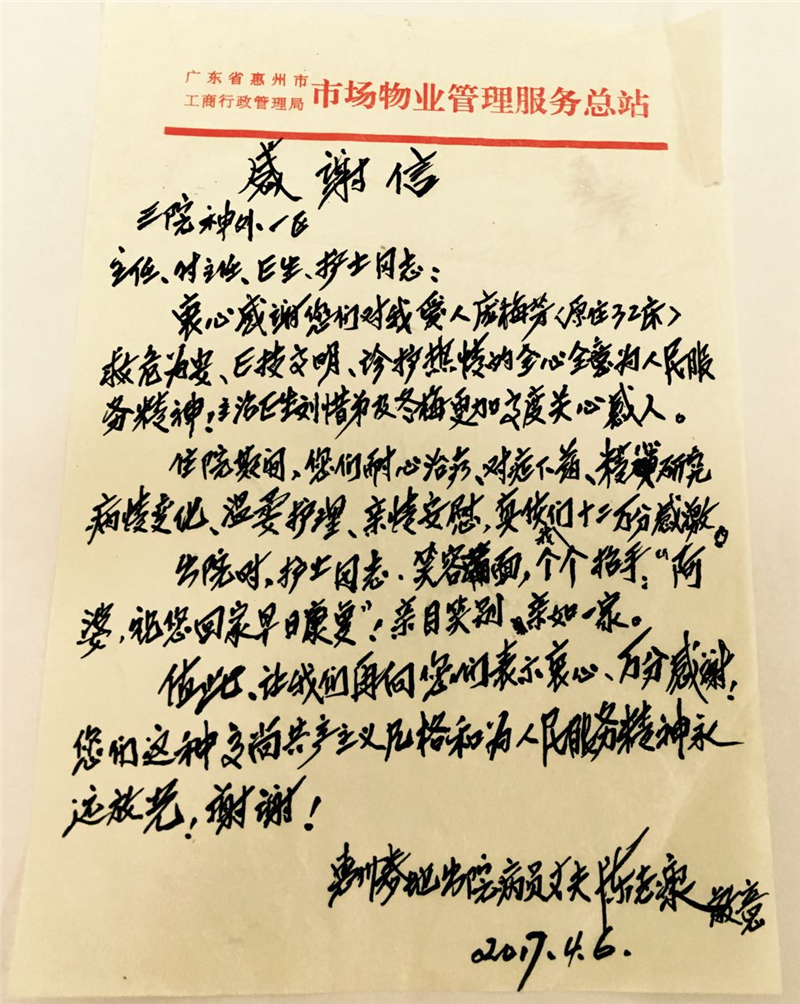 广东省惠州市
工商行政管理局 市场物业管理服务总站
感谢信
三院神外一区
主任、付主任、医生、护士同志：
衷心感谢您们对我爱人庞梅芳〈原住32床〉
救危为安、医技文明、诊护热情的全心全意为人民服
务精神！主治医生刘惜弟及冬梅更加高度关心感人。
住院期间，您们耐心治疗、对症下药、精心研究
病情变化、温委护理、亲情安慰，真使我们十二万分感激。
出院时，护士同志.笑容满面，个个招手：“阿
婆，祝您回家早日康复”！亲目笑别、亲如一家。
值此、让我们再向您们表示衷心、万分感谢！
您们这种高尚共产主义风格和为人民服务精神永
远放光！谢谢！
惠州 出院病员丈夫陈志泉 敬意
2017.4.6.